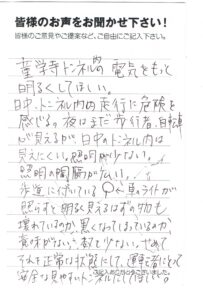 皆様のお声をお聞かせ下さい！
皆様のご意見やご提案など、ご自由にご記入下さい。
トンネル内の電気をもっと
明るくしてほしい。
日中、トンネル内の走行に危険を
感じる。夜はまだ歩行者、自転車
が見えるが日中のトンネル内は
見えにくい。照明が少ない。
照明の間隔が広い。
歩道に付いている 車のライトが
照らすと明るく見えるはずの物も
壊れているのか、黒くなってしまっているのか
意味がない。数も少ない。せめて
それを正常な状態にして、運転者にとって
安全な見やすいトンネルにしてほしい。
ご記入ありがとうございました。